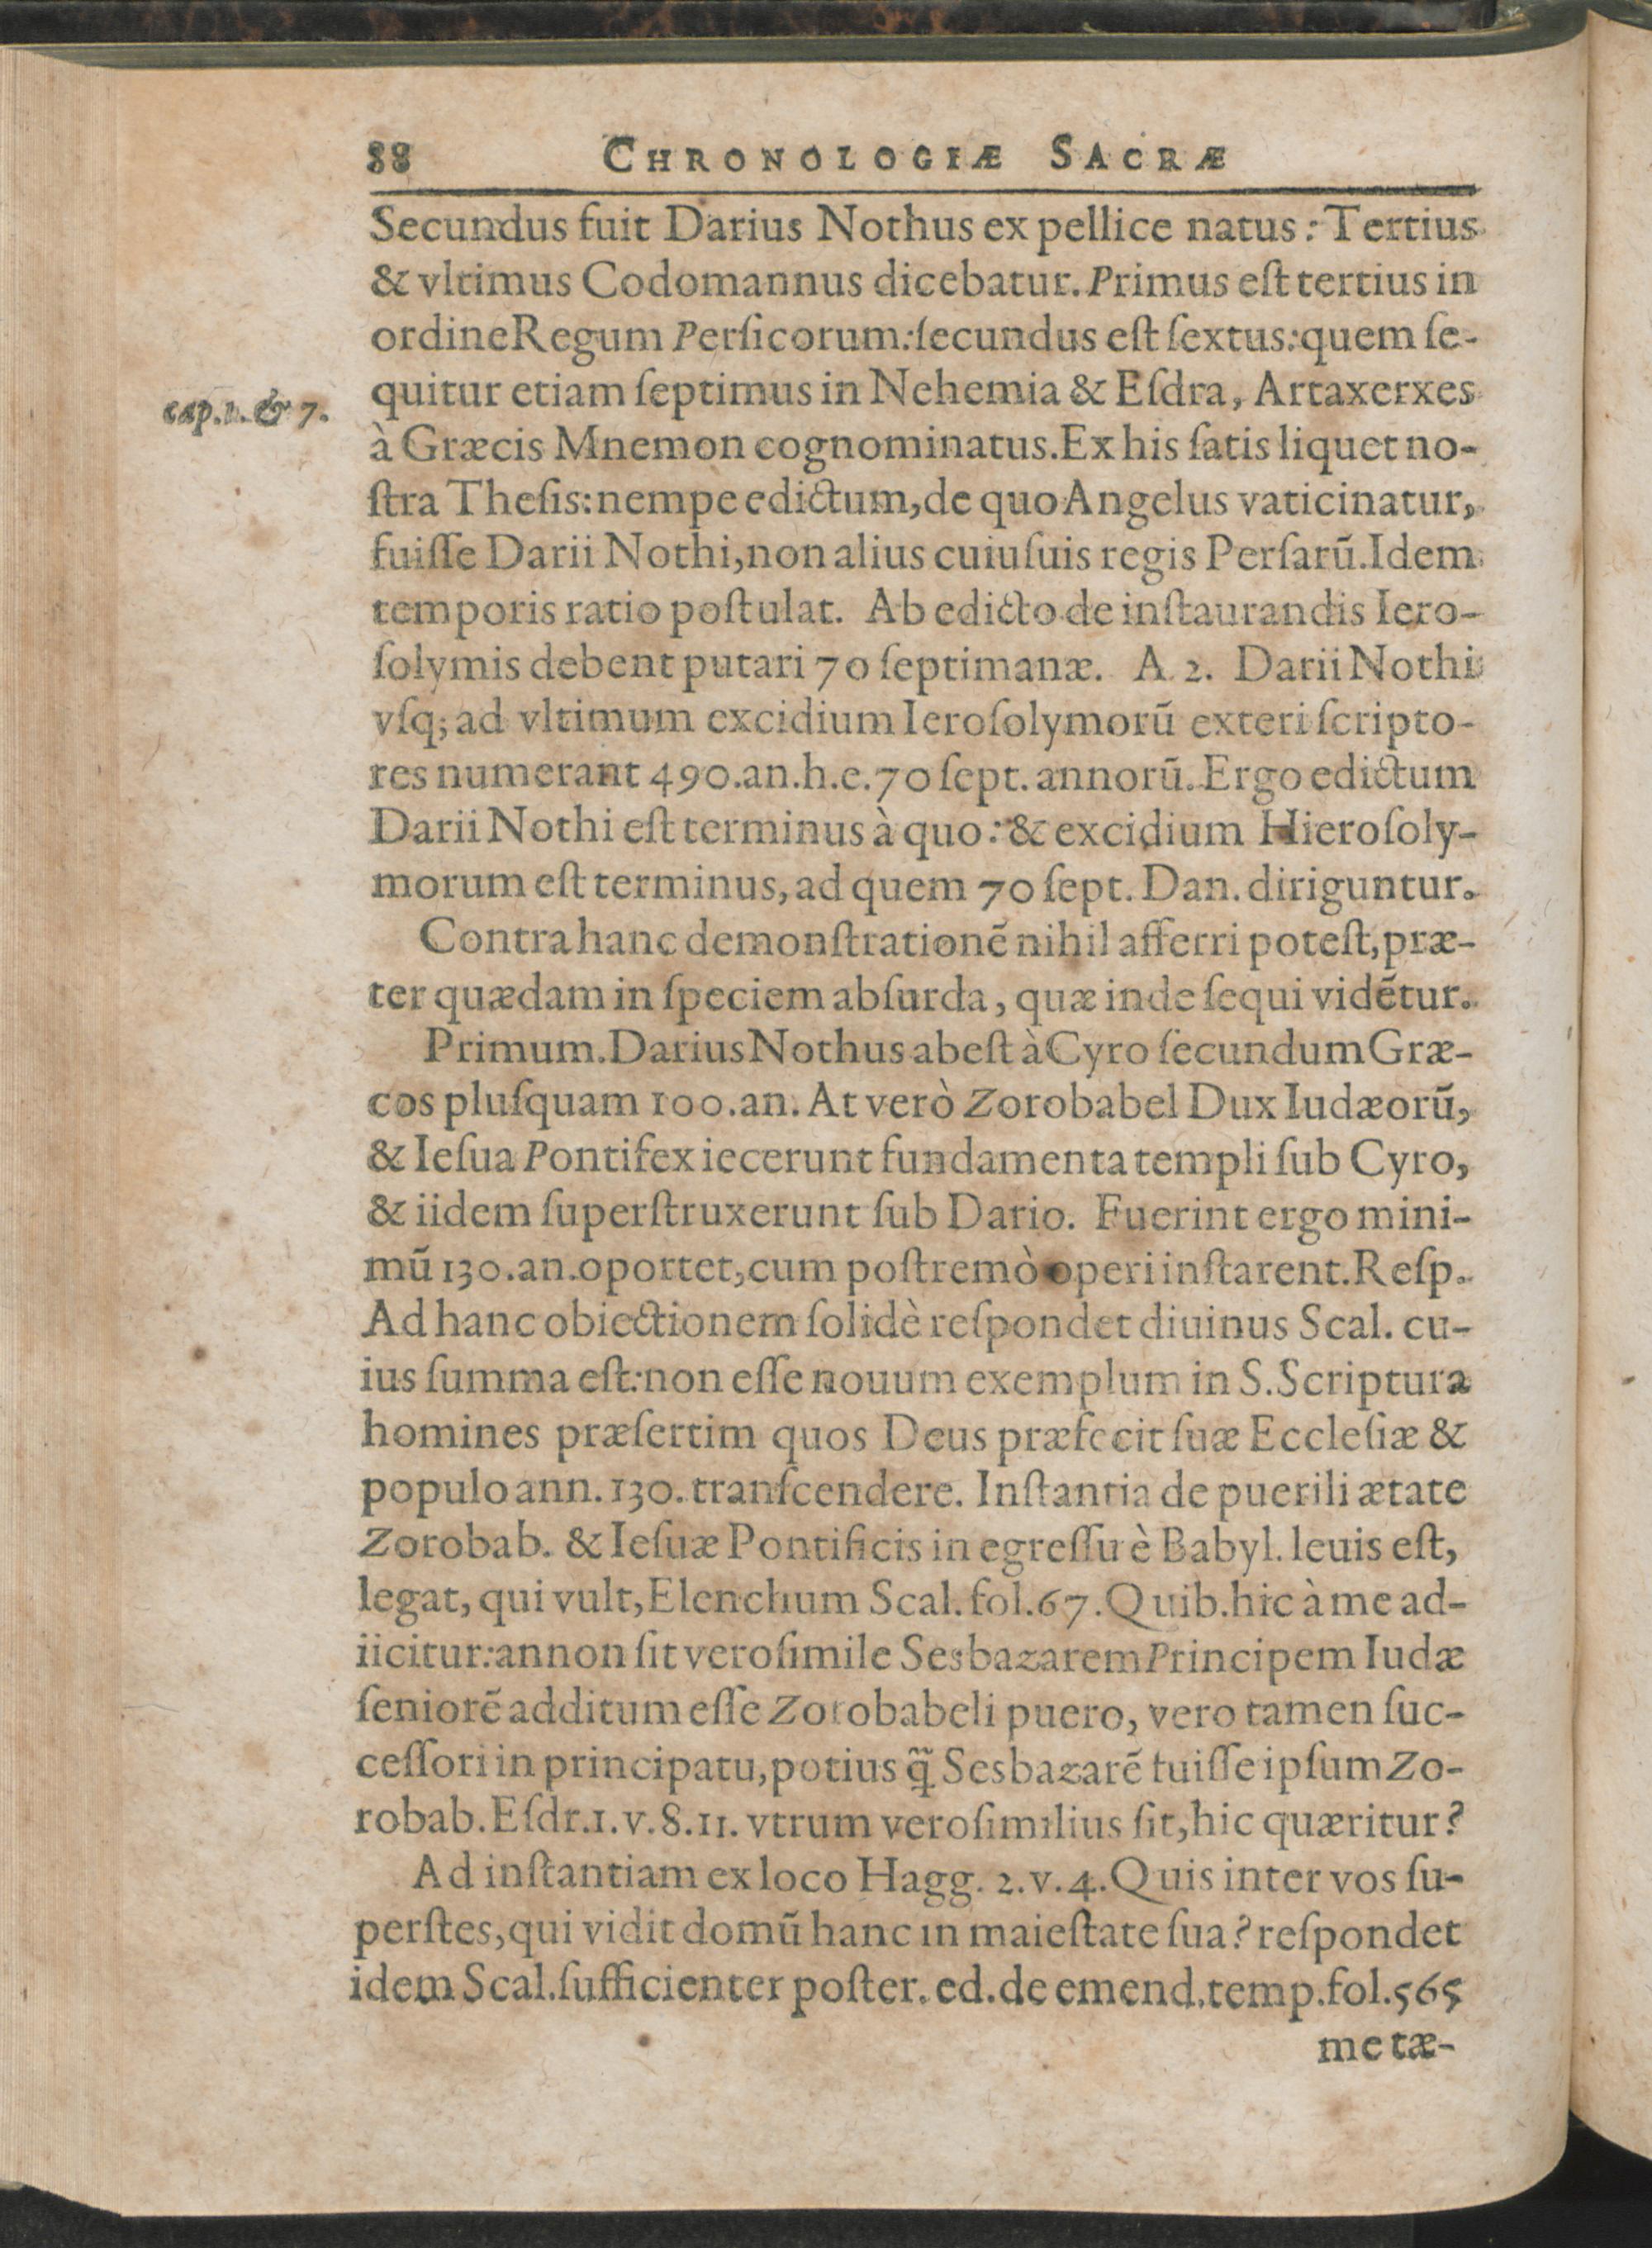 88 CHRONOLOGIÆ SACRÆ
Secundus fuit Darius Nothus ex pellice natus: Tertius
& vltimus Codomannus dicebatur. Primus eſt tertius in
ordine Regum Perſicorum: ſecundus eſt ſextus: quem ſe-
quitur etiam ſeptimus in Nehemia & Eſdra, Artaxerxes
cap. 1. & 7.
à Græcis Mnemon cognominatus. Ex his ſatis liquet no-
ſtra Theſis: nempe edictum, de quo Angelus vaticinatur,
fuiſſe Darii Nothi, non alius cuiuſuis regis Perſarũ. Idem
temporis ratio poſtulat. Ab edicto de inſtaurandis Iero-
ſolymis debent putari 70 ſeptimanæ. A 2. Darii Nothi
vſq; ad vltimum excidium Ieroſolymorũ exteri ſcripto-
res numerant 490. an. h. e. 70 ſept. annorũ. Ergo edictum
Darii Nothi eſt terminus à quo: & excidium Hieroſoly-
morum eſt terminus, ad quem 70 ſept. Dan. diriguntur.
Contra hanc demonſtrationẽ nihil afferri poteſt, præ-
ter quædam in ſpeciem abſurda, quæ inde ſequi vidẽtur.
Primum. Darius Nothus abeſt à Cyro ſecundum Græ-
cos pluſquam 100. an. At verò Zorobabel Dux Iudæorũ,
& Ieſua Pontifex iecerunt fundamenta templi ſub Cyro,
& iidem ſuperſtruxerunt ſub Dario. Fuerint ergo mini-
mũ 130. an. oportet, cum poſtremò operi inſtarent. Reſp.
Ad hanc obiectionem ſolidè reſpondet diuinus Scal. cu-
ius ſumma eſt: non eſſe nouum exemplum in S. Scriptura
homines præſertim quos Deus præfecit ſuæ Eccleſiæ &
populo ann. 130. tranſcendere. Inſtantia de puerili ætate
Zorobab. & Ieſuæ Pontificis in egreſſu è Babyl. leuis eſt,
legat, qui vult, Elenchum Scal. fol. 67. Quib. hic à me ad-
iicitur: annon ſit veroſimile Sesbazarem Principem Iudæ
ſeniorẽ additum eſſe Zorobabeli puero, vero tamen ſuc-
ceſſori in principatu, potius q̃ Sesbazarẽ fuiſſe ipſum Zo-
robab. Eſdr. 1. v. 8. 11. vtrum veroſimilius ſit, hic quæritur?
Ad inſtantiam ex loco Hagg. 2. v. 4. Quis inter vos ſu-
perſtes, qui vidit domũ hanc in maieſtate ſua? reſpondet
idem Scal. ſufficienter poſter. ed. de emend. temp. fol. 565
me tæ-